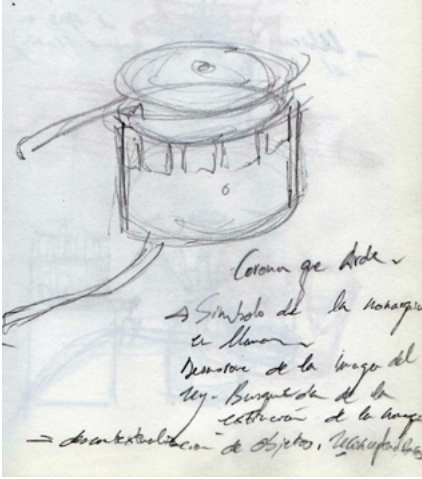 Corona que Arde
→ Símbolo de la monarquía
en llamas
de la imagen del
rey - Búsqueda de la
extinción de la
→ descontextualización de objetos,